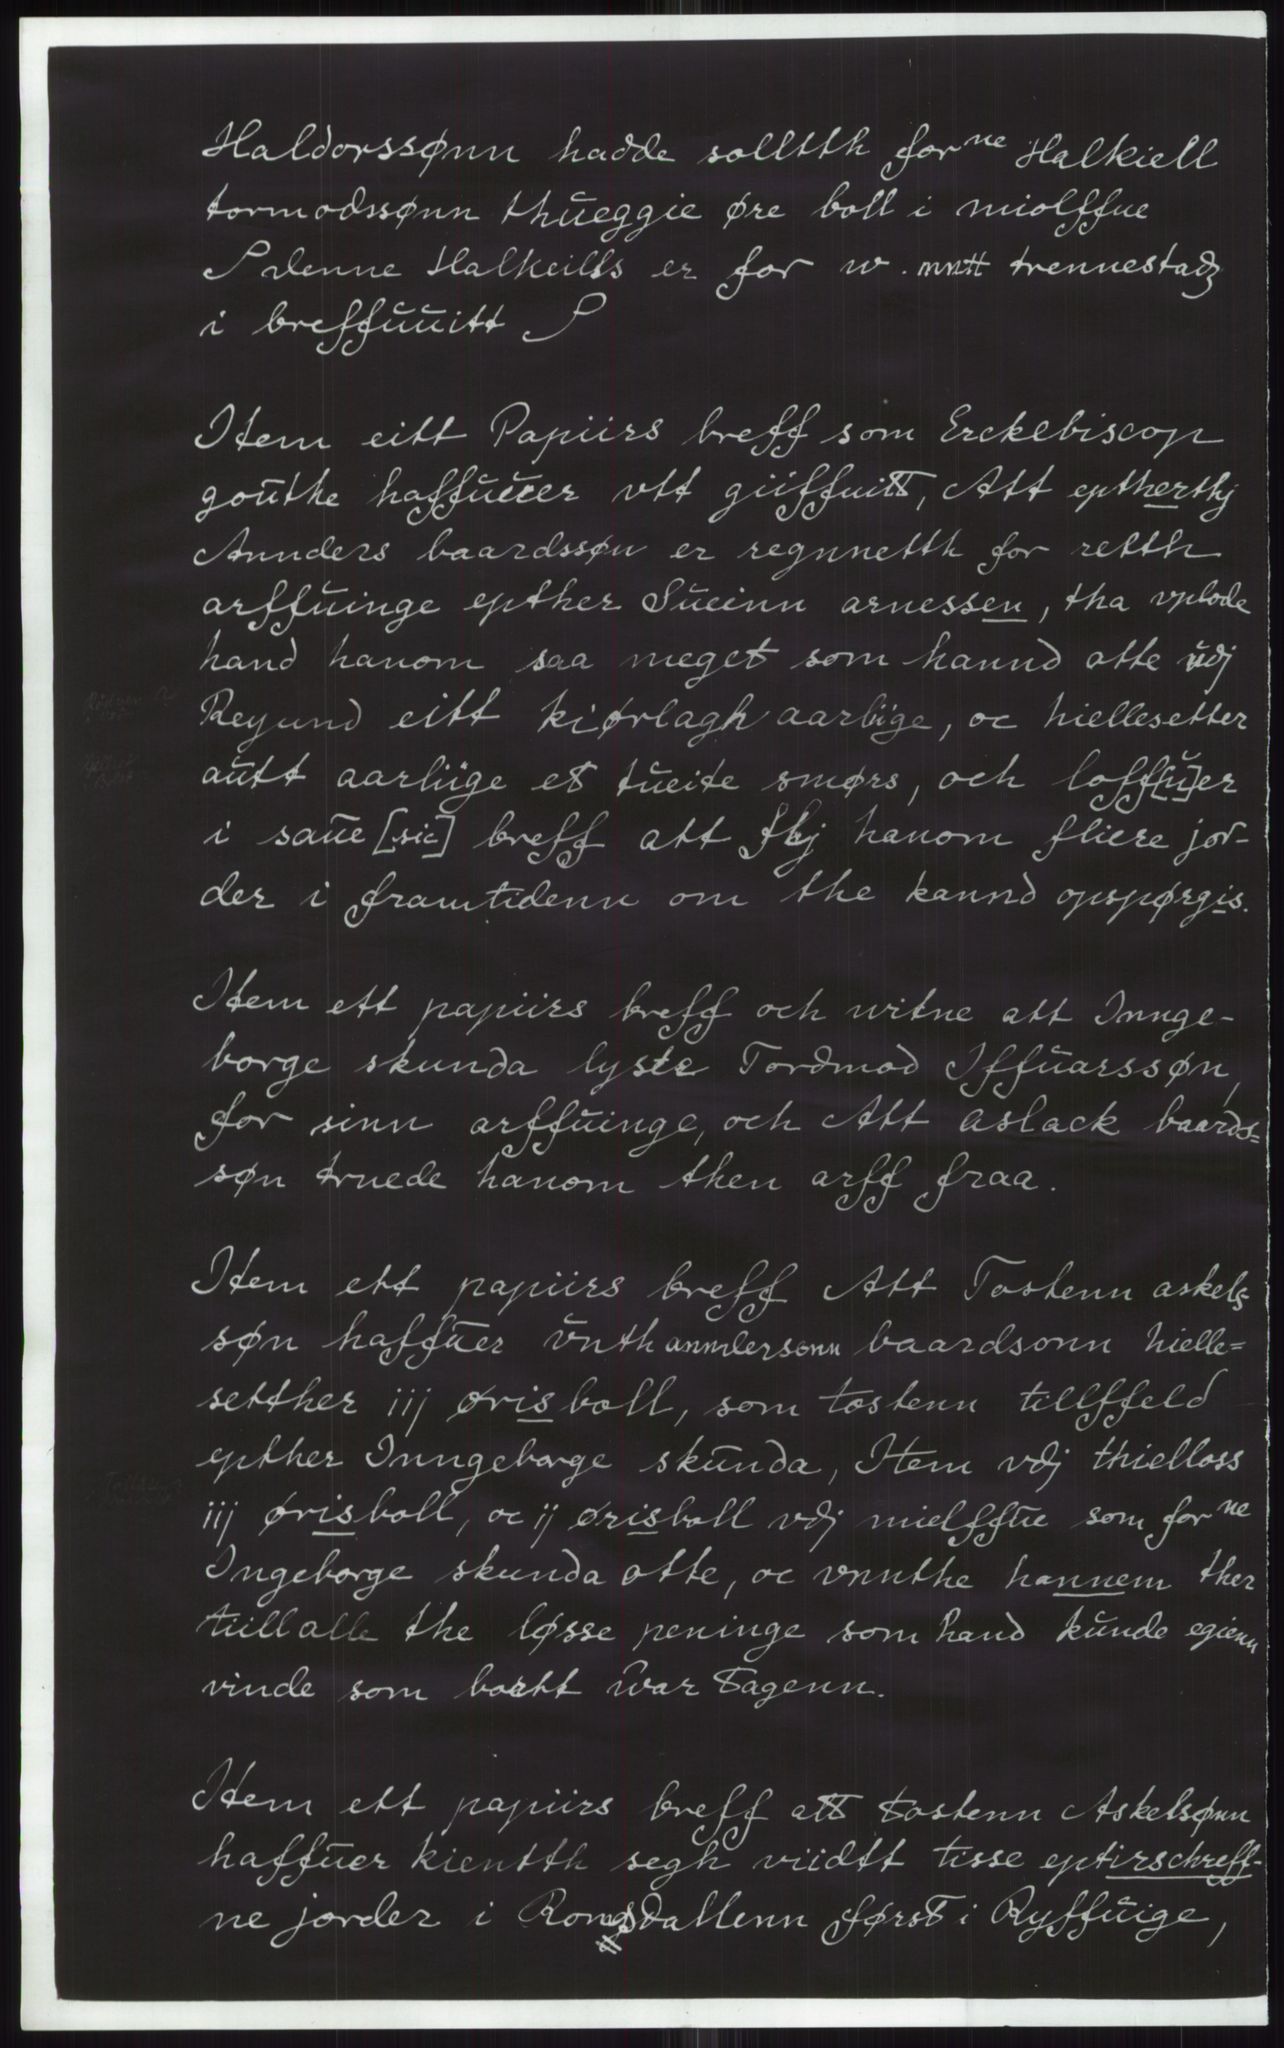 Haldorssønn hadde solltth forne Halkiell
tormodssønn thŭeggie øre boll i miolffue
denne Halkeills er for w. mntt trennestadz
i breffŭŭitt
Item eitt Papiirs breff som Erckebiscop
goŭthe haffŭŭer vtt giiffuitt, Att eptherthj
Annders baardssøn er regnnetth for retth
arffŭinge epther Sŭeinn arnessen, tha vplode
hand hanom saa meget som hannd otte ŭdj
Reynnd eitt kiørlagh aarliige, oc hiellesetter
aŭtt aarliige et tŭeite smørs, och loff[ŭ]er
i saŭe [sic] breff att fhj hanom fliere jor-
der i framtidenn om the kannd opspørgis.
Item ett papiirs breff och witne att Innge-
borge skunda lyste Tordmod Iffŭarssøn,
for sinn arffŭinge, och Att aslack baards=
søn trŭede hanom then arff fraa.
Item ett papiirs breff Att Tostenn askels
søn haffŭer ŭnth anndersonn baardsonn hielle=
setther iij øris boll, som tostenn tillffeld
epther Inngeborge skŭnda, Item vdj thielloss
iij øris boll, oc ij øris boll vdj mielffŭe som forne
Ingeborge skunda otte, oc vnnthe hannem ther
tiill alle the løsse peninge som hand kŭnde egienn
vinde som bortt ŭar tagenn.
Item ett papiirs breff att tostenn Askelsønn
haffŭer kientth segh viidtt tisse eptirschreff-
ne jorder i Romsdallenn først i Ryffŭige,